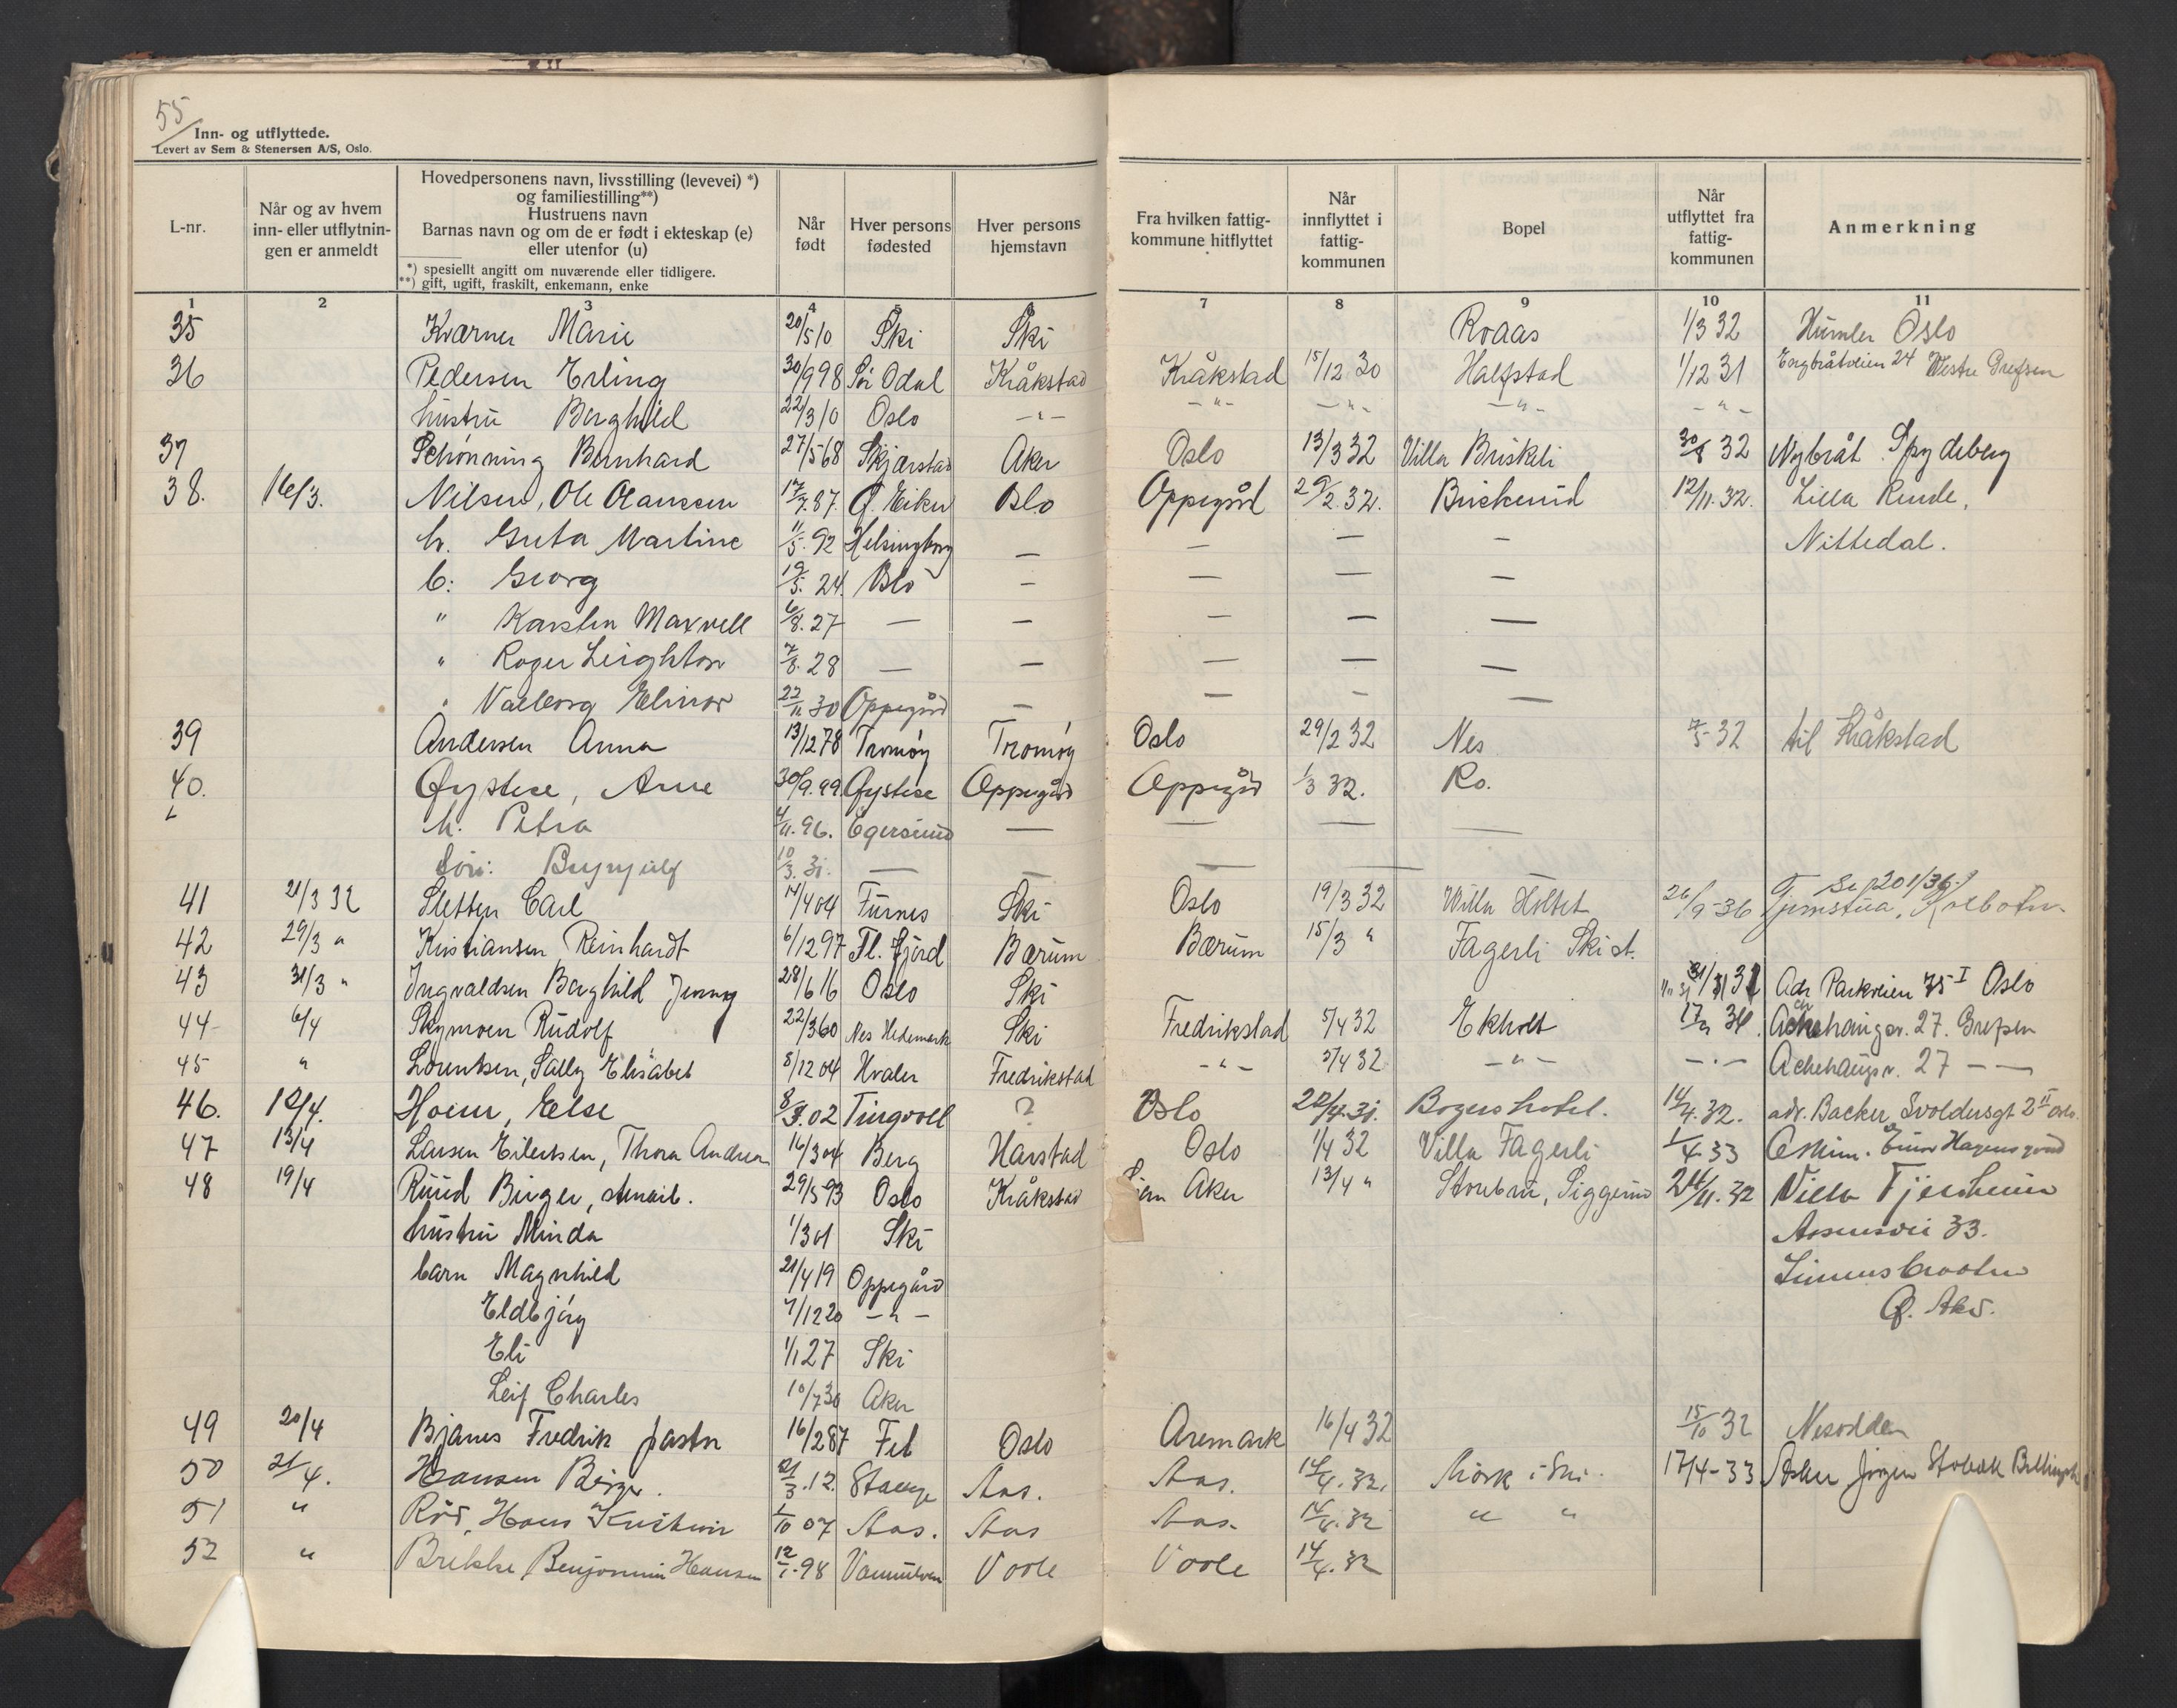 55
Inn- og utflyttede.
Levert av Sem & Stenersen A/S, Oslo.
L-nr.
Når og av hvem inn- eller utflytnin- gen er anmeldt
Hovedpersonens navn, livsstilling (levevei) *) og familiestilling**) Hustruens navn Barnas navn og om de er født i ekteskap (e) eller utenfor (u)
*) spesielt angitt om nuværende eller tidligere.
**) gift, ugift, fraskilt, enkemann, enke
Når født
Hver persons fødested
Hver persons hjemstavn
Fra hvilken fattig- kommune hitflyttet
Når innflyttet i fattig- kommunen
Bopel
Når utflyttet fra fattig- kommunen
Anmerkning
1 2 3 4 5 6 7 8 9 10 11
35 Kværner Marie 20/5 10 Ski Ski Roaas 1/3 32 Humler Oslo
36 Pedersen Erling 30/9 98 Sør Odal Kråkstad Kråkstad 15/12 30 Halfstad 1/12 31 Engbråtveien 24 Westre Grefsen
hustru Borghild 22/3 10 Oslo -"- -"- -"- -"- -"-
37 Schønning Bernhard 27/5 68 Skjærstad Aker Oslo 13/3 32 Villa Briskeli 30/8 32 Nybråt Spydeberg
38. 16/3. Nilsen, Ole Olaussen 17/7.87. Ø. Eiker Oslo Oppegård 29/2.32. Buskerud 12/11.32. Lilla Runde,
h. Greta Martine 11/5.92 Helsingborg — — — — Nittedal.
b: Georg 19/5.24. Oslo — — — —
" Karsten Maxvell 6/8.27 — — — — —
" Roger Leighton 7/8.28 — — — — —
" Valborg Elinor 22/11 30 Oppegård — — — —
39 Andersen Anna 13/12 78 Tromøy Tromøy Oslo 29/2 32 Nes 7/5 32 til Kråkstad
40. Øystese, Arne 30/9.99. Øystese Oppegård Oppegård 1/3 32. Ro.
h. Petra 4/11.96. Egersund — — — —
Brynjulf 10/3.31. — — — —
41 21/3 32 Sletten Carl 14/4 04 Furnes Ski Oslo 19/3 32 Villa Holtet 26/9-36 Se 201/36. Tjernstua, Kolbotn
42 29/3 " Kristiansen Reinhardt 6/12 97 Fl. fjord Bærum Bærum 15/3 " Fagerli Ski st.
43 31/3 " Ingvaldsen Borghild Jenny 28/6 16 Oslo Ski Adr Parkveien 75 I Oslo
44 6/4 Skymoen Rudolf 22/3 60 Nes Hedemark Ski Fredrikstad 5/4 32 Ekholt Ackehaugsv. 27. Grefsen
45 " Lorentsen, Sally Elisabet 8/12 04 Hvaler Fredrikstad -"- 5/4 32 -"- -"- Ackehaugsv. 27 — —
46. 12/4. Hoem, Else 02 Tingvoll ? Oslo 20/4.31. Bogershotel. 14/4.32. adr. Backer Svoldersgt 2 II Oslo.
47 13/4 Larsen Eilertsen, Thora Andrea 16/3 04 Berg Harstad Oslo 1/4 32 Villa Fagerli 1/4.33 Askim.
48 19/4 Ruud Birger, stenarb. 29/5 93 Oslo Kråkstad Aker 13/4 " Stenbru, Siggerud 24/11.32 Villa Fjellheim
hustru Minda 1/3 01 Ski 33.
barn Magnhild 21/4 19 Oppegård
Eldbjørg 7/12 20 -"- Ø. Aker.
Eli 1/1 27 Ski
Leif Charles 10/7 30 Aker
49 20/4 Bjanes Fredrik pastor 16/2 87 Fet Oslo Aremark 16/4 32 15/10 32 Nesodden
50 21/4. Hansen Birger. 21/3.12. Stange Aas. Aas. 14/4.32. Mörk i Ski. 17/4-33 Asker Jørgen
51 " Röd, Hans Kristian 1/10 07 Aas. Aas Aas. 14/4.32 " "
52 " Brekke Benjamin Hansen 12/1.98 Vannelven Voole Voole 14/4.32